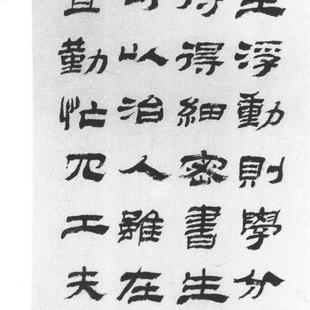 浮動則學分
得細密書生
可以治人雖在
勤忙冗工夫